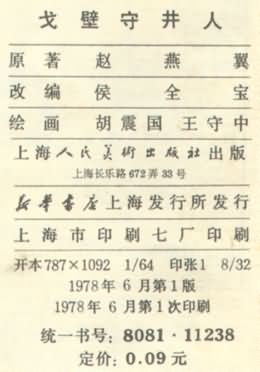 戈壁守井人
原著 赵燕翼
改编 侯全宝
绘画 胡震国 王守中
上海人民美術出版社出版
上海长乐路672弄33号
新华書店上海发行所发行
上海市印刷七厂印刷
开本787×1092 1/64 印张1 8/32
1978年6月第1版
1978年6月第1次印刷
统一书号：8081·11238
定价：0.09元